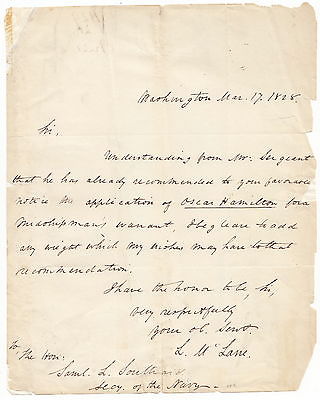 Washington Mar. 17. 1828.
Sir,
Understanding from Mr. Sergeant
that he has already recommended to your favorable
notice the application of Oscar Hamilton for a
Midshipman's warrant, I beg leave to add
any weight which my wishes may have to that
recommendation.
I have the honor to be, Sir,
very respectfully
your ob. Servt.
L. McLane.
To
The Hon:
Saml. L. Southard
Secy. of the Navy